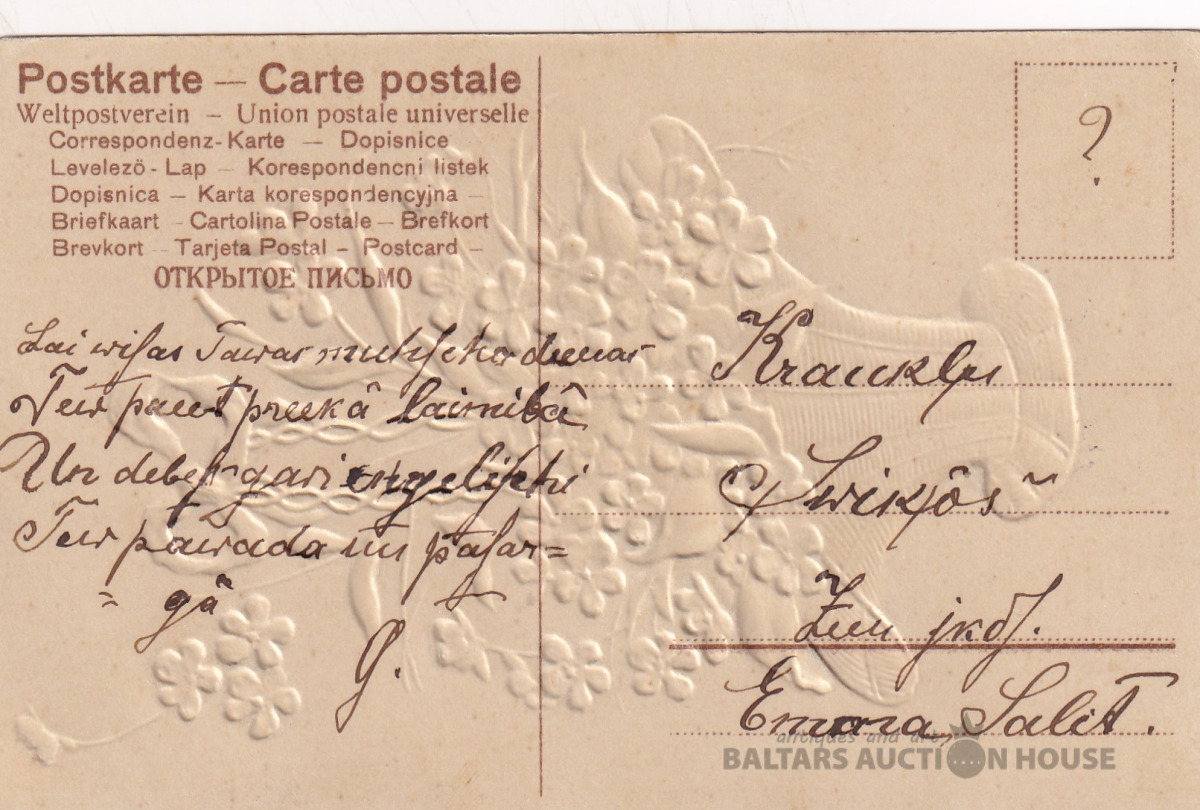 Postkarte — Carte postale
Weltpostverein – Union postale universelle
Correspondenz-Karte — Dopisnice
Levelező-Lap – Korespondencni listek
Dopisnica – Karta korespondencyjna –
Briefkaart – Cartolina Postale – Brefkort
Brevkort – Tarjeta Postal – Postcard –
ОТКРЫТОЕ ПИСЬМО
?
Lai wisas Tawas muhscha deenas
Tew paeet preekâ laimibâ
Un debess gari engelischi
Tew pawada un pasar=
= gâ
G.
Kraukļu
Zem jkdz.
Emma Salit.
antiques and art
BALTARS AUCTION HOUSE